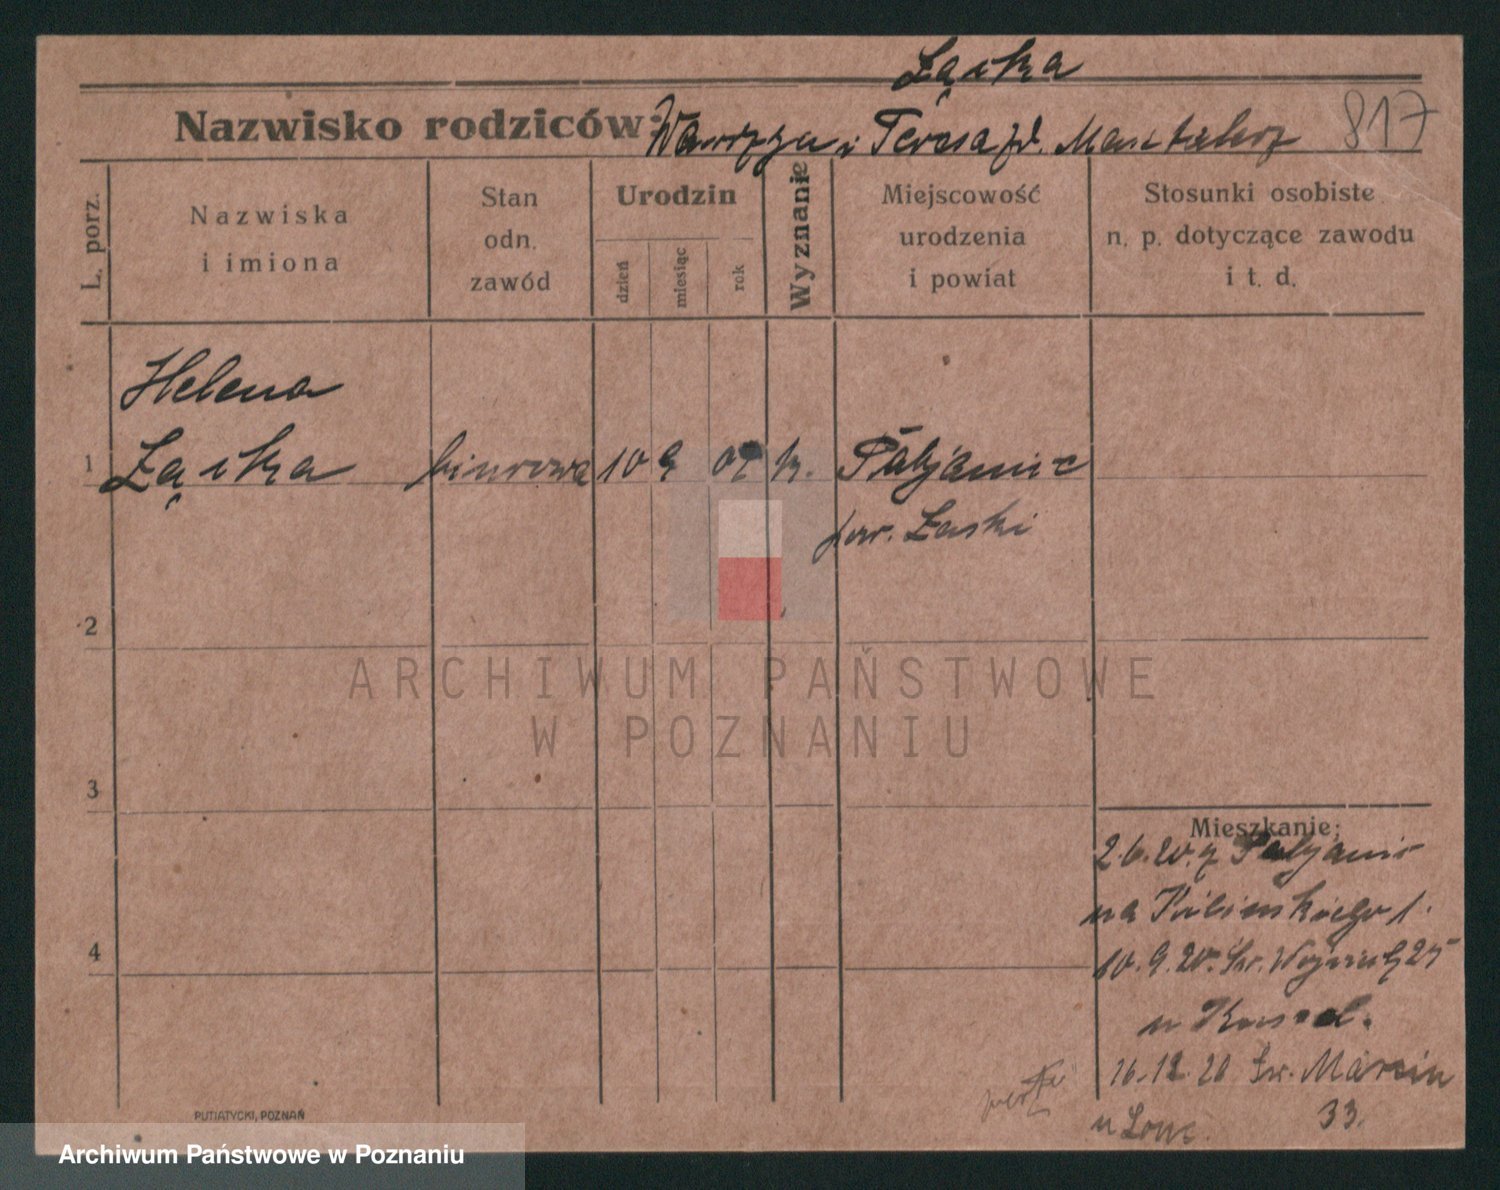 Łącka
Nazwisko rodziców: Wawrzyn i Teresa zd. 817
L. porz.
Nazwiska
i imiona
Stan
odn.
zawód
Urodzin
dzień
miesiąc
rok
Wyznanie
Miejscowość
urodzenia
i powiat
Stosunki osobiste
n. p. dotyczące zawodu
i t. d.
Helena
1 Łącka biurowa 10 9 07 k. Pabjanic
pow. Łaski
2
ARCHIWUM PAŃSTWOWE
W POZNANIU
3
Mieszkanie:
2.6.20. z Pabjanic
na Kilinskiego 1.
4
10.9.20. Św. Wojciech 25
u
16.12 20 Św. Marcin
33.
u
PUTIATYCKI, POZNAŃ
Archiwum Państwowe w Poznaniu